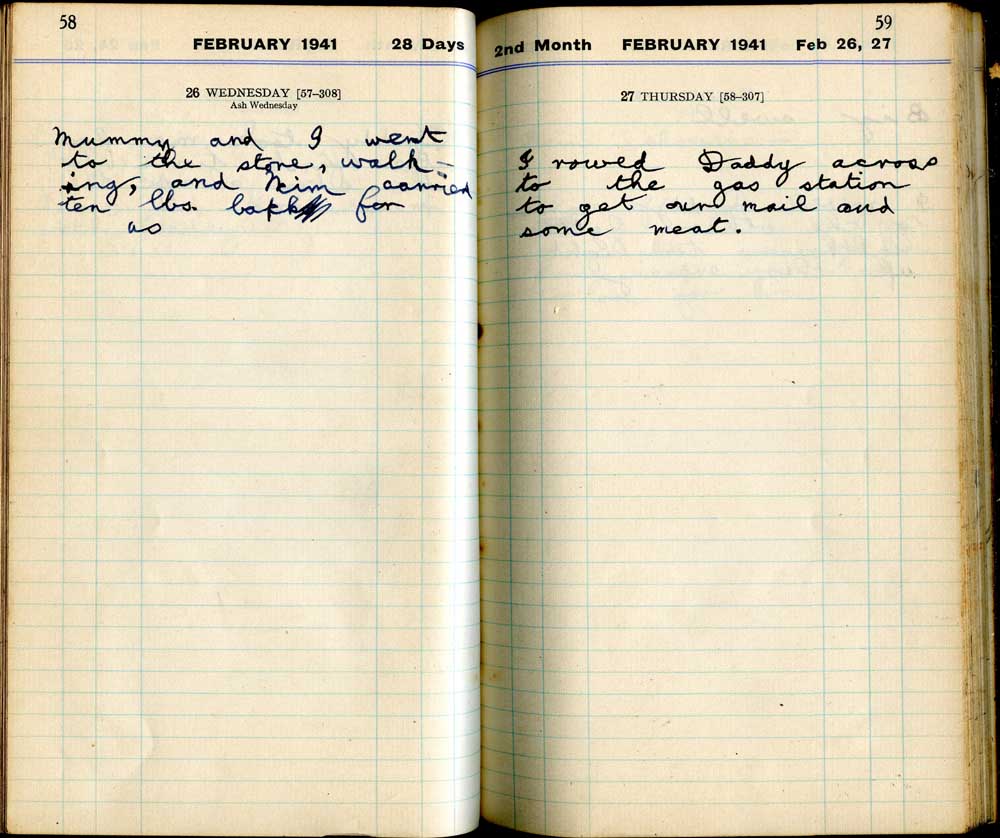 58
FEBRUARY 1941 28 Days
26 WEDNESDAY [57–308]
Ash Wednesday
Mummy and I went
to the store, walk-
ing, and Kim carried
ten lbs. back for
us
59
2nd Month FEBRUARY 1941 Feb 26, 27
27 THURSDAY [58–307]
I rowed Daddy across
to the gas station
to get our mail and
some meat.